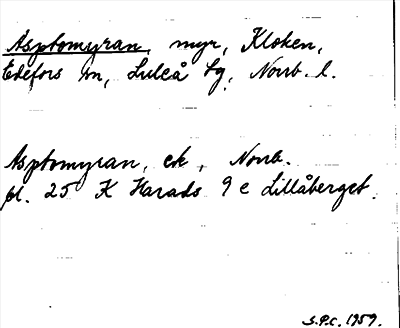 Asptomyran, myr, Kloken,
Edefors sn, Luleå lg, Norrb. l.
Asptomyran, ek, Norrb.
bl. 25 K Harads 9 e Lillåberget.
S.P.C. 1959.